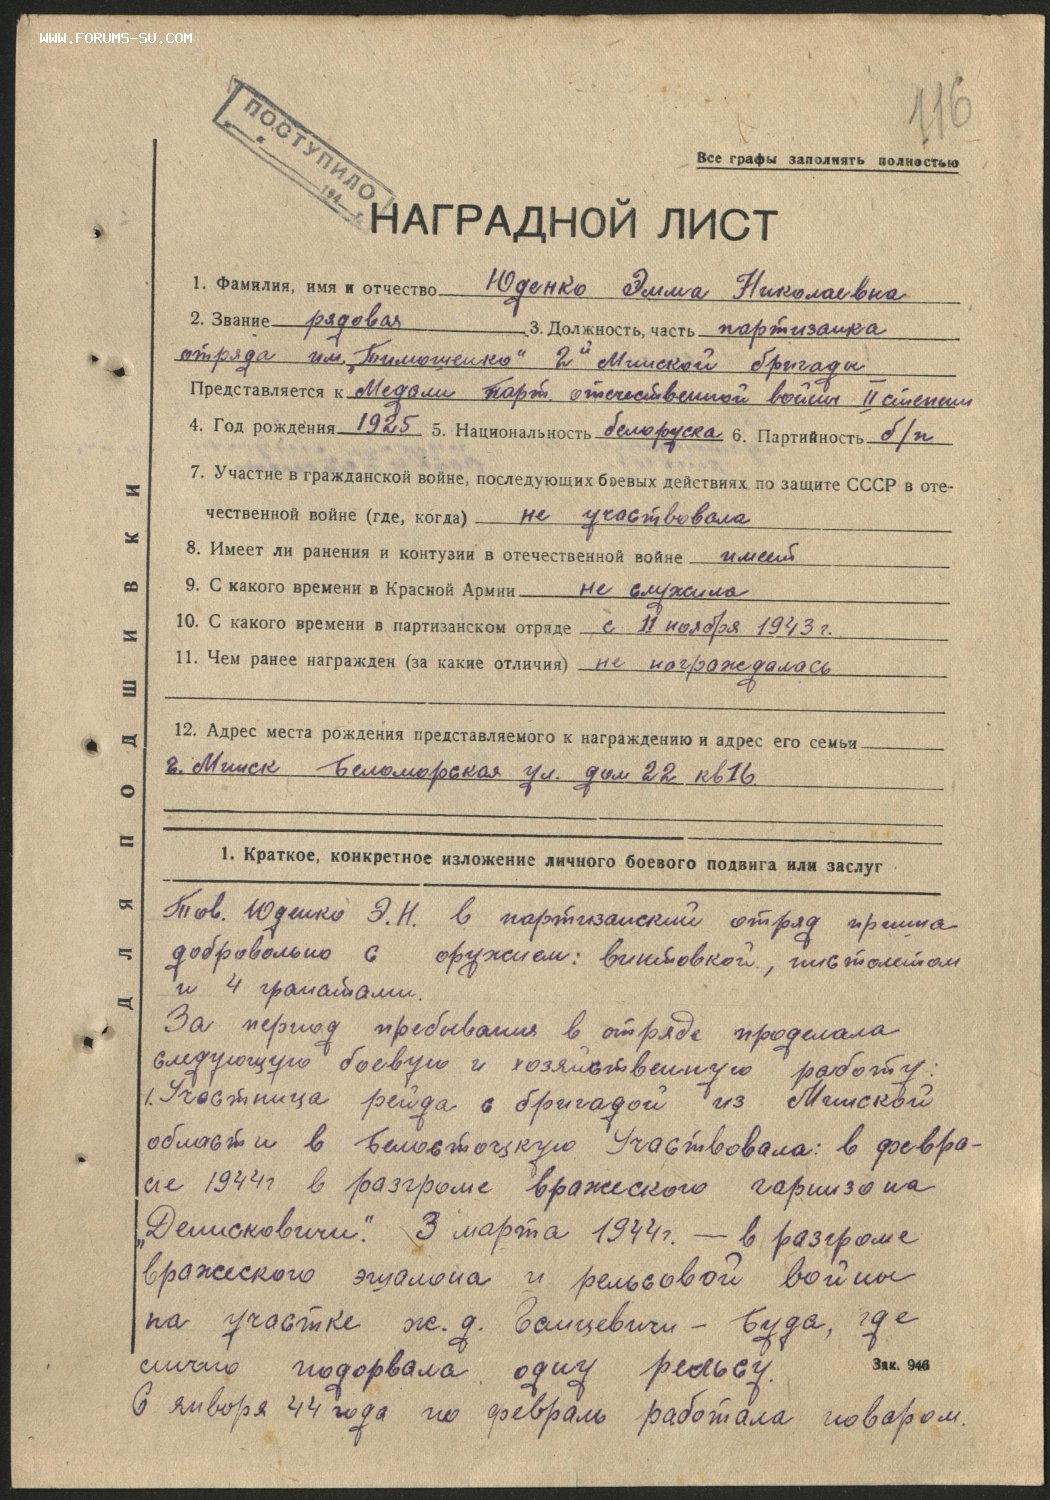 WWW.FORUMS-SU.COM
ПОСТУПИЛО
194 г.
116
Все графы заполнять полностью
НАГРАДНОЙ ЛИСТ
1. Фамилия, имя и отчество Юденко Эмма Николаевна
2. Звание рядовая 3. Должность, часть партизанка
отряда им. „Тимошенко“ 2й Минской бригады
Представляется к Медали Парт. отечественной войны II степени
4. Год рождения 1925 5. Национальность белоруска 6. Партийность б/п
7. Участие в гражданской войне, последующих боевых действиях по защите СССР в оте-
чественной войне (где, когда) не участвовала
8. Имеет ли ранения и контузии в отечественной войне имеет
9. С какого времени в Красной Армии не служила
10. С какого времени в партизанском отряде с 11 ноября 1943 г.
11. Чем ранее награжден (за какие отличия) не награждалась
12. Адрес места рождения представляемого к награждению и адрес его семьи
г. Минск Беломорская ул. дом 22 кв 16
ДЛЯ ПОДШИВКИ
1. Краткое, конкретное изложение личного боевого подвига или заслуг
Тов. Юденко Э.Н. в партизанский отряд пришла
добровольно с оружием: винтовкой, пистолетом
и 4 гранатами.
За период пребывания в отряде проделала
следующую боевую и хозяйственную работу:
1. Участница рейда с бригадой из Минской
области в Белостоцкую Участвовала: в февра-
ле 1944г в разгроме вражеского гарнизона
„Денисковичи“. 3 марта 1944г. — в разгроме
вражеского эшалона и рельсовой войны
на участке ж. д. Ганцевичи – Буда, где
лично подорвала одну рельсу.
Зак. 946
С января 44 года по февраль работала поваром.